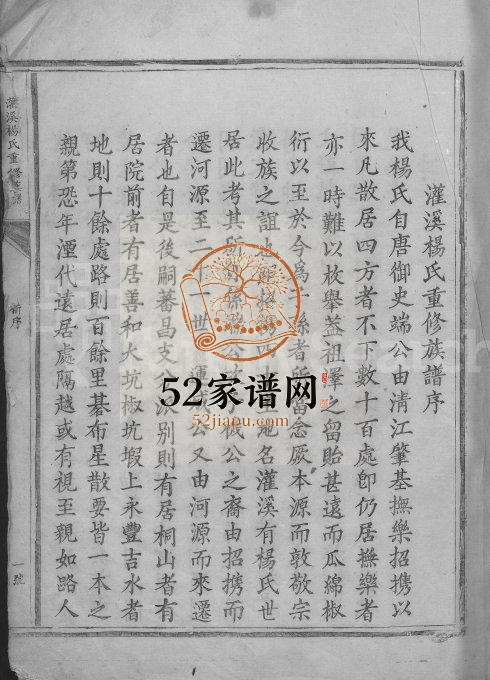 灌溪楊氏重修族譜序
我楊氏自唐御史端公由淸江肇基撫樂招携以
來凡散居四方者不下數十百處卽仍居撫樂者
亦一時難以枚舉葢祖澤之留貽甚遠而瓜綿椒
衍以至於今爲一係者所當念厥本源而敦敬宗
收族之誼也 地名灌溪有楊氏世
居此考其所 公之裔由招携而
遷河源至二十一世 公又由河源而來遷
者也自是後嗣蕃昌支分派別則有居桐山者有
居院前者有居善和大坑椒坑塅上永豐吉水者
地則十餘處路則百餘里棊布星散要皆一本之
親第恐年湮代遠居處隔越或有視至親如路人
灌溪楊氏重修
前序
一號
52家谱网
52jiapu.com